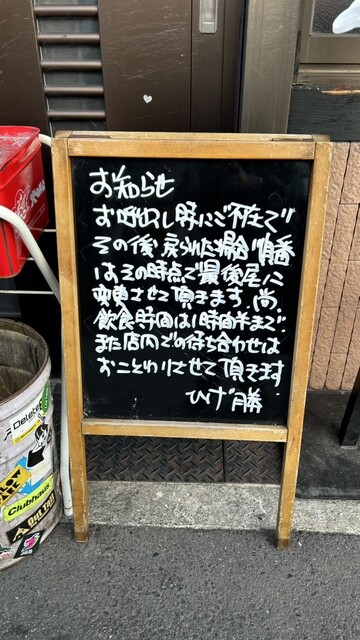 お知らせ
お呼出し時にご不在で
その後、戻られた場合順番
はその時点で最後尾に
変更させて頂きます。尚、
飲食時間は1時間半まで。
また店内での待ち合わせは
おことわりさせて頂きます
ひげ勝
Delete
Clubhaus